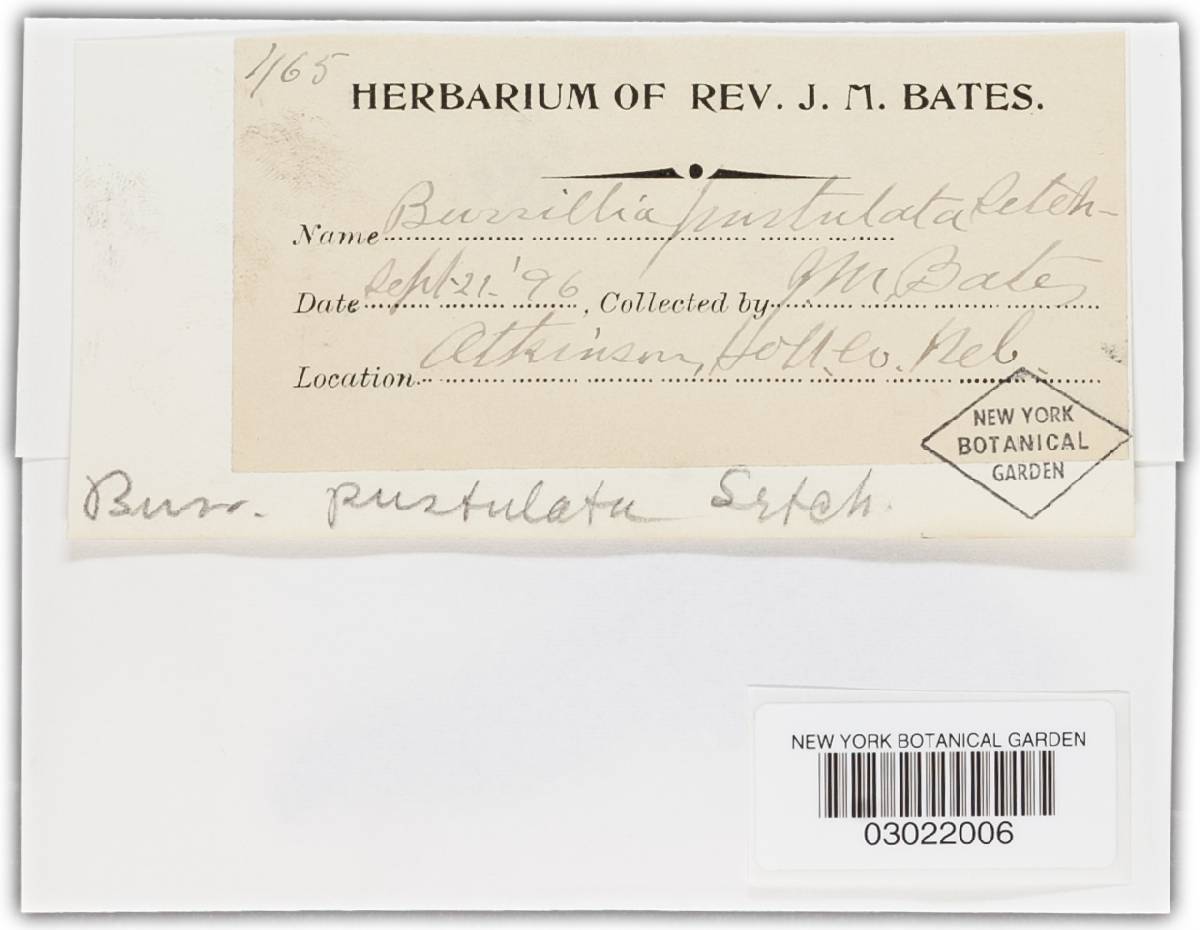 465
HERBARIUM OF REV. J. M. BATES.
Name Burrillia pustulata Setch-
Date Sept-21-'96, Collected by J.M. Bates
Location Atkinson, Holt. Co. Neb.
NEW YORK
BOTANICAL
GARDEN
Burr. pustulata Setch.
NEW YORK BOTANICAL GARDEN
03022006